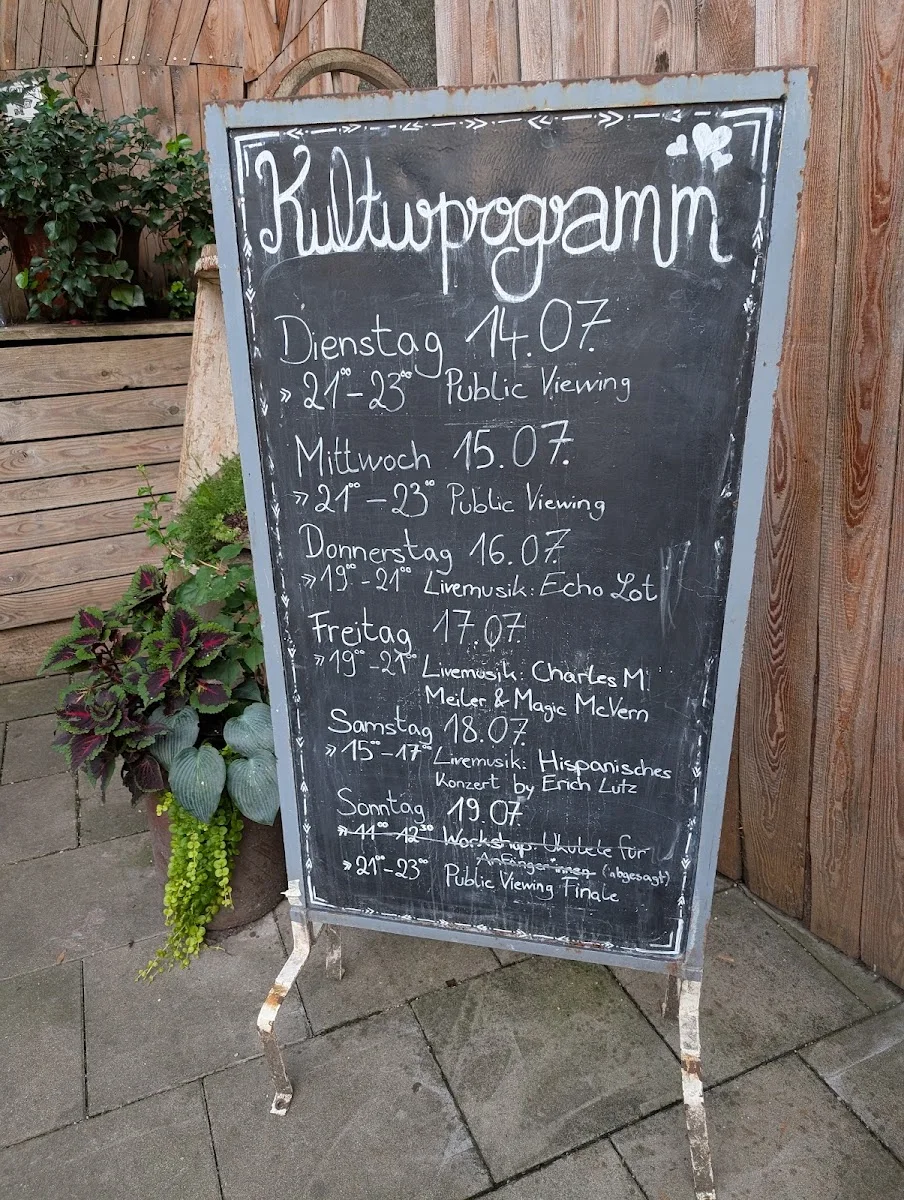 Kulturprogramm
Dienstag 14.07.
» 21⁰⁰-23⁰⁰ Public Viewing
Mittwoch 15.07.
» 21⁰⁰-23⁰⁰ Public Viewing
Donnerstag 16.07.
» 19⁰⁰-21⁰⁰ Livemusik: Echo Lot
Freitag 17.07.
» 19⁰⁰-21⁰⁰ Livemusik: Charles M.
Meiler & Magic McVern
Samstag 18.07.
» 15⁰⁰-17⁰⁰ Livemusik: Hispanisches
Konzert by Erich Lutz
Sonntag 19.07.
» 11⁰⁰-12³⁰ Workshop: Ukulele für
Anfänger*innen (abgesagt)
» 21⁰⁰-23⁰⁰ Public Viewing Finale